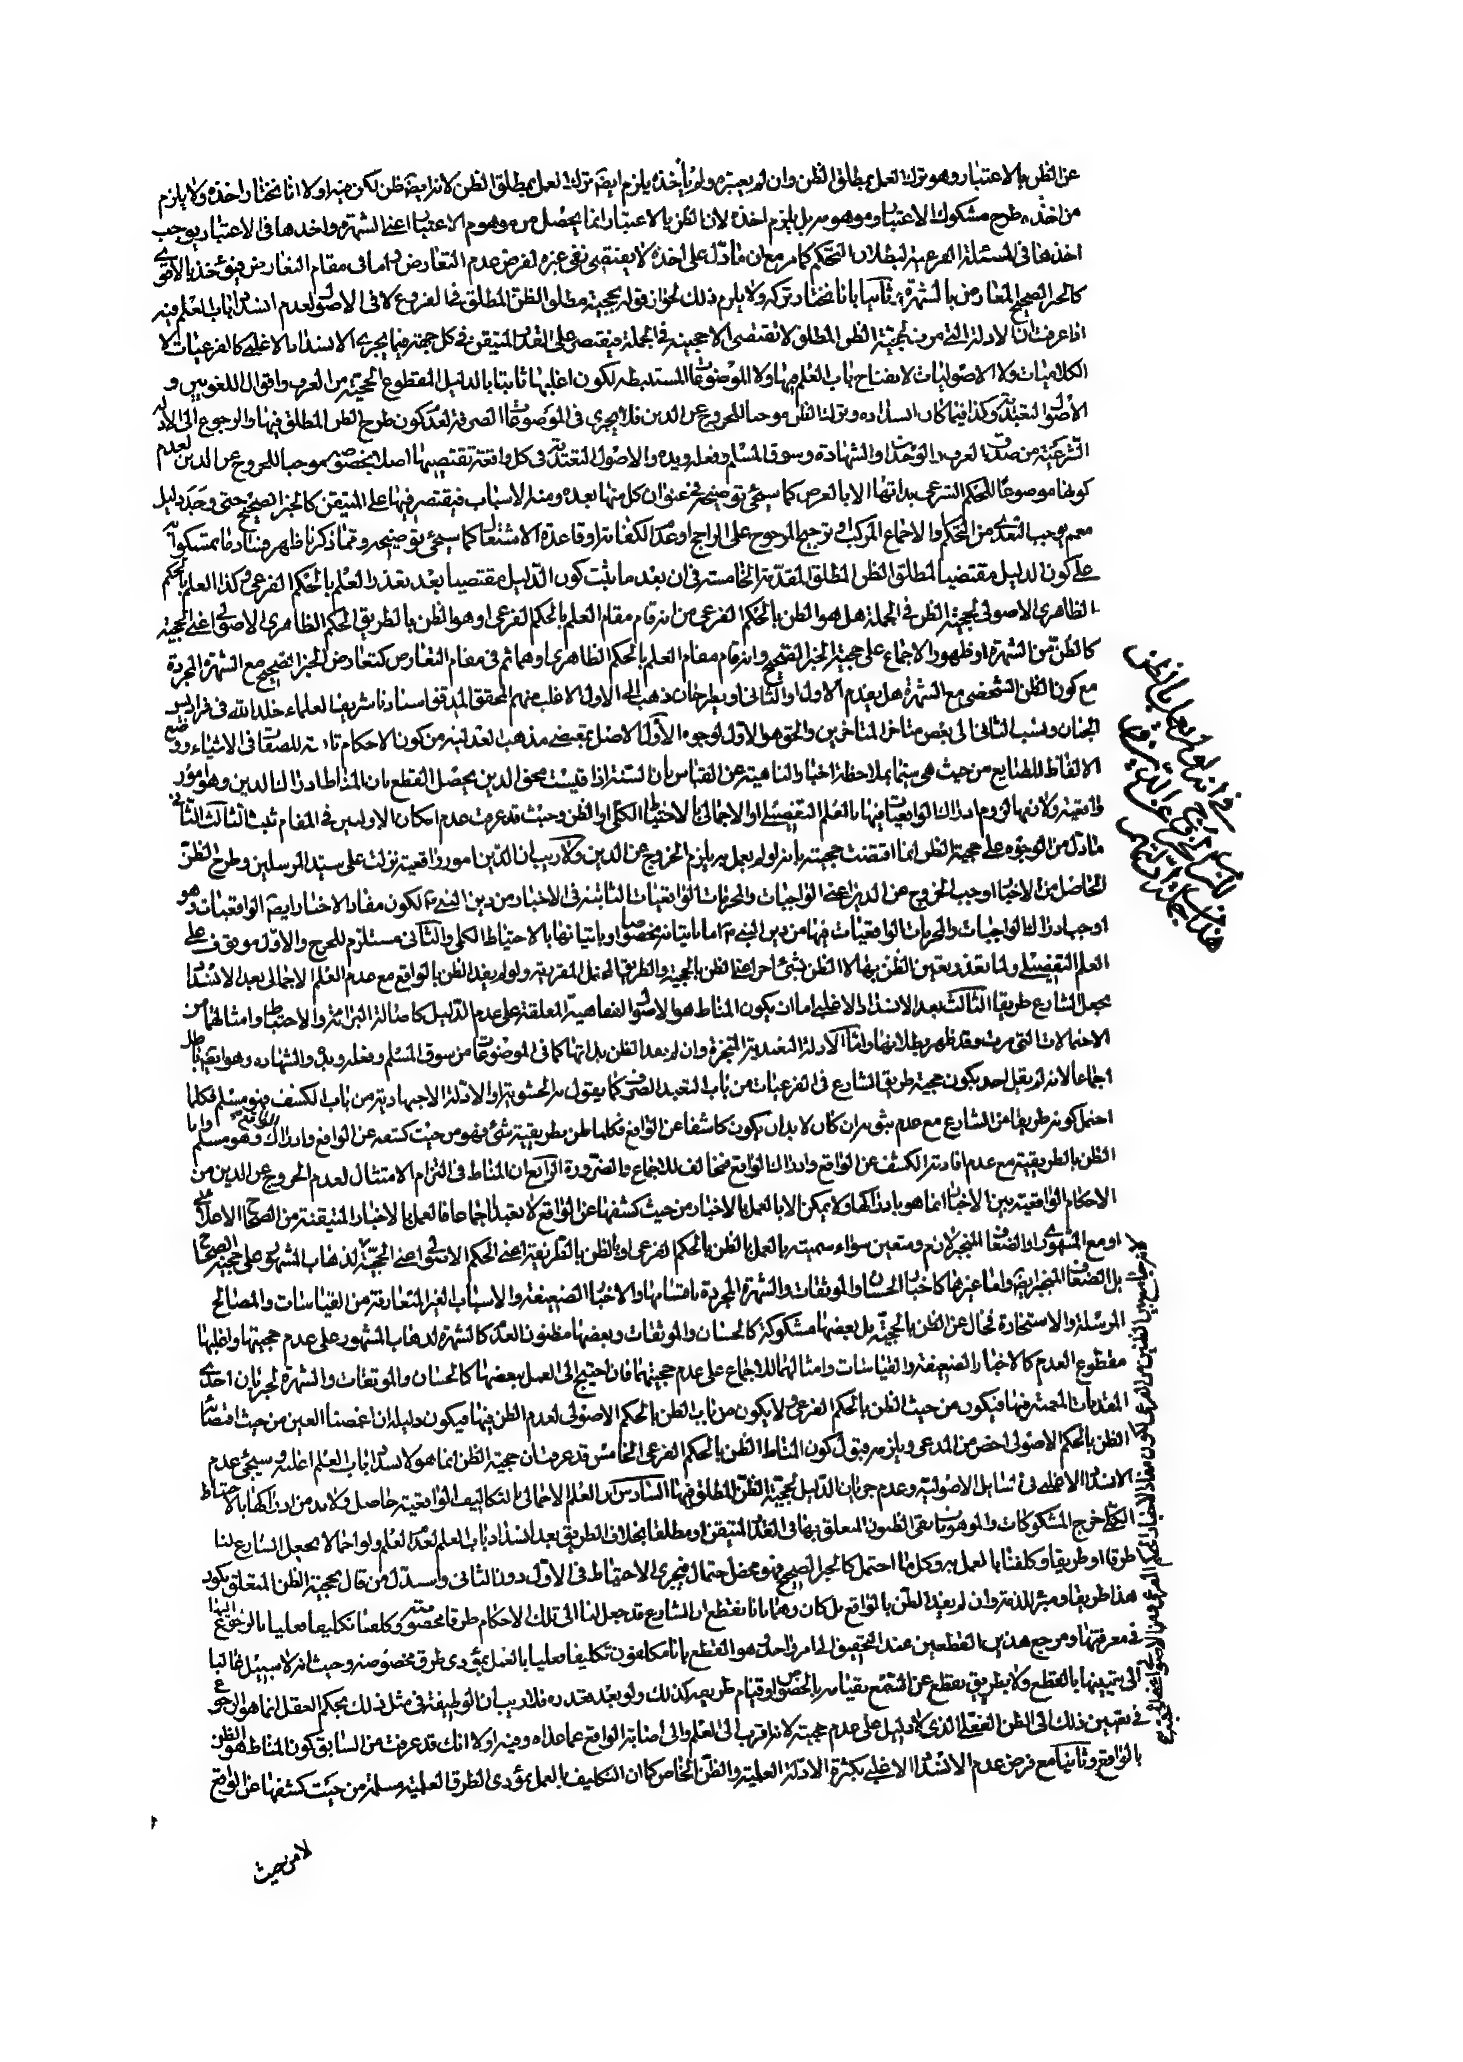 عن الظن بالاعتبار وهو ترك العمل بمطلق الظن وان لم يعتبره ولم يأخذه يلزم ايضا ترك العمل بمطلق الظن لانه ايضا ظن لكن فيه اولا انا نختار اخذه ولا يلزم
من اخذه طرح مشكوك الاعتبار وموهومه بل يلزم اخذه لان الظن بالاعتبار انما يحصل من موهوم الاعتبار اعنى الشهرة واخذها فى الاعتبار يوجب
اخذها فى المسئلة الفرعية لبطلان التحكم كما مر مع ان ما دل على اخذه لا يقتضى نفى غيره لفرض عدم التعارض واما فى مقام التعارض فيؤخذ بالاقوى
كالخبر الصحيح المعارض بالشهرة وثانيا بانا نختار تركه ولا يلزم ذلك لجواز قوله بحجية مطلق الظن المطلق فى الفروع لا فى الاصول لعدم انسداد باب العلم فيه
اذا عرفت ان الادلة التى مرت لحجية الظن المطلق لا تقتضى الا حجيته فى الجملة فيقتصر على القدر المتيقن فى كل جهة فيما يجرى الانسداد الاغلبى كالفرعيات لا
الكلاميات ولا الاصوليات لانفتاح باب العلم فيها ولا الموضوعات المستنبطة لكون اغلبها ثابتا بالدليل المقطوع الحجية من العرف واقوال اللغويين و
الاصول التعبدية وكذا فيما كان انسداده وترك الظن موجبا للخروج عن الدين فلا يجرى فى الموضوعات الصرفة لعدم كون طرح الظن المطلق فيها والرجوع الى الادلة
الشرعية من صدق العرف والوجدان والشهادة وسوق المسلم وفعله ويده والاصول التعبدية فى كل واقعة تقتضيها اصلا بخصوصه موجبا للخروج عن الدين لعدم
كونها موضوعا للحكم الشرعى بذاتها الا بالعرض كما سيجئ توضيحه فى عنوان كل منها بعده ومنه الاسباب فيقتصر فيها على المتيقن كالخبر الصحيح حتى وجد دليل
معمم يوجب التعدى من التحكم والاجماع المركب وترجيح المرجوح على الراجح او عدم الكفاية او قاعدة الاشتغال كما سيجئ توضيحه ومما ذكرنا ظهر فساد ما تمسكوا به
على كون الدليل مقتضيا لمطلق الظن المطلق المقدمة الخامسة فى ان بعد ما ثبت كون الدليل مقتضيا بعد تعذر العلم بالحكم الفرعى وكذا العلم بالحكم
الظاهرى الاصولى لحجية الظن فى الجملة هل هو الظن بالحكم الفرعى من انه قام مقام العلم بالحكم الفرعى او هو الظن بالطريق الحكم الظاهرى الاصولى اعنى الحجية
كالظن من الشهرة او ظهور الاجماع على حجية الخبر الصحيح وانه قام مقام العلم بالحكم الظاهرى او هما ثم فى مقام التعارض كتعارض الخبر الصحيح مع الشهرة المجردة
مع كون الظن الشخصى مع الشهرة هل يقدم الاول او الثانى او يطرحان ذهب الى الاول الاغلب منهم المحقق المدقق استادنا شريف العلماء خلده الله فى فراديس
الجنان ونسب الثانى الى بعض متاخر المتاخرين والحق هو الاول لوجوه الاول الاصل بمقتضى مذهب العدلية من كون الاحكام تابعة للصفات فى الاشياء ووضع
الالفاظ للطبايع من حيث هى سيما بملاحظة اخبار الناهية عن القياس بان السنة اذا قيست محق الدين يحصل القطع بان المناط ادراك الدين وهو امور
واقعية ولازمها لزوم ادراك الواقعيات فيها بالعلم التفصيلى او الاجمالى بالاحتياط الكلى او الظن وحيث قد عرفت عدم امكان الاولين فى المقام ثبت الثالث الثانى
ما دل من الوجوه على حجية الظن انما اقتضت حجيته بانه لو لم يعمل به يلزم الخروج عن الدين ولا ريب ان الدين امور واقعية نزلت على سيد المرسلين وطرح الظن
الحاصل من الاخبار اوجب الخروج عن الدين اعنى الواجبات والمحرمات الواقعيات الثابتة فى الاخبار من دين النبى ص لكون مفاد الاخبار ايضا الواقعيات وهو
اوجب ادراك الواجبات والمحرمات الواقعيات فيها من دين النبى ص اما باتيانه بخصوصها او باتيانها بالاحتياط الكلى والثانى مستلزم للحرج والاول موقوف على
العلم التفصيلى ولما تعذر يتعين الظن بها لا الظن بشئ اخر اعنى الظن بالحجية والطريق
يجعل الشارع طريقا الثالث بعد الانسداد الاغلبى اما ان يكون المناط هو الاصول الفقاهية المعلقة على عدم الدليل كاصالة البرائة والاحتياط وامثالهما من
الاحتمالات التى مرت وقد ظهر بطلانها واما الادلة التعبدية المنجزة وان لم يفد الظن بذاتها كما فى الموضوعات من سوق المسلم وفعله ويده والشهادة وهو ايضا باطل
اجماعا لانه لم يقل احد بكون حجية طريق الشارع فى الفرعيات من باب التعبد الصرف كما يقول به الحشوية او الادلة الاجتهادية من باب الكشف فهو مسلم فكلما
احتمل كونه طريقا من الشارع مع عدم ثبوته ان كان لا بد ان يكون كاشفا عن الواقع فكلما ظن بطريقية شئ فهو من حيث كشفه عن الواقع وادراك الواقع وهو مسلم واما
الظن بالطريقية مع عدم افادته الكشف عن الواقع وادراك الواقع فمخالف للاجماع والضرورة الرابع ان المناط فى التزام الامتثال لعدم الخروج عن الدين من
الاحكام الواقعية بين الاخبار انما هو بادراكها ولا يمكن الا بالعمل بالاخبار من حيث كشفها عن الواقع لا تعبدا اجماعا فالعمل بالاخبار المتيقنة من الصحاح الاعلائى
او مع المشهورى او الضعاف المنجبر لازم ومتعين سواء سميته بالعمل بالظن بالحكم الفرعى او بالظن بالطريقية اعنى الحكم الاصولى اعنى الحجية لذهاب المشهور على حجية الصحاح
بل الضعاف المنجبر ايضا واما غيرها كاخبار الحسان والموثقات والشهرة المجردة باقسامها والاخبار الضعيفة والاسباب الغير المتعارفة من القياسات والمصالح
المرسلة والاستخارة فخال عن الظن بالحجية بل بعضها مشكوكة كالحسان والموثقات وبعضها مظنون العدم كالشهرة لذهاب المشهور على عدم حجيتها واغلبها
مقطوع العدم كالاخبار الضعيفة والقياسات وامثالهما للاجماع على عدم حجيتهما فان احتيج الى العمل ببعضها كالحسان والموثقات والشهرة لجريان احدى
المقدمات المعممة فيها فيكون من حيث الظن بالحكم الفرعى ولا يكون من باب الظن بالحكم الاصولى لعدم الظن فيها فيكون دليله ان اغمضنا العين من حيث اقتضائه
الظن بالحكم الاصولى اخص من المدعى ويلزمه قبول كون المناط الظن بالحكم الفرعى الخامس قد عرفت ان حجية الظن انما هو لانسداد باب العلم اغلبه وسيجئ عدم
الانسداد الاغلبى فى مسايل الاصولية وعدم جريان الدليل لحجية الظن المطلق فيها السادس ان العلم الاجمالى بالتكاليف الواقعية حاصل ولا بد من ادراكها بالاحتياط
الكلى خرج المشكوكات والموهومات بقى الظنون المتعلق بها فى القدر المتيقن او مطلقا بخلاف الطريق بعد انسداد باب العلم لعدم العلم ولو اجمالا بجعل الشارع لنا
طرقا او طريقا وكلفنا بالعمل به وكل ما احتمل كالخبر الصحيح فهو محض احتمال فيجرى الاحتياط فى الاول دون الثانى واستدل من قال بحجية الظن المتعلق بكون
هذا طريقا ومبرئ الذمة وان لم يفد الظن بالواقع بل كان وهما بانا نقطع ان الشارع قد جعل لنا الى تلك الاحكام طرقا مخصوصة وكلفنا تكليفا فعليا بالرجوع اليها
فى معرفتها ومرجع هذين القطعين عند التحقيق الى امر واحد وهو القطع بانا مكلفون تكليفا فعليا بالعمل بمؤدى طرق مخصوصة وحيث انه لا سبيل غالبا
الى تعيينها بالقطع ولا بطريق نقطع عن السمع بقيامه بالخصوص او قيام طريقه كذلك ولو بعد تعذره فلا ريب ان الوظيفة فى مثل ذلك بحكم العقل انما هو الرجوع
فى تعيين ذلك الى الظن الفعلى الذى لا دليل على عدم حجيته لانه اقرب الى العلم والى اصابة الواقع مما عداه وفيه اولا انك قد عرفت من السابق كون المناط هو الظن
بالواقع وثانيا مع فرض عدم الانسداد الاغلبى بكثرة الادلة العلمية والظن الخاص كما ان التكليف بالعمل بمؤدى الطرق العلمية مسلمة من حيث كشفها عن الواقع
لا من حيث